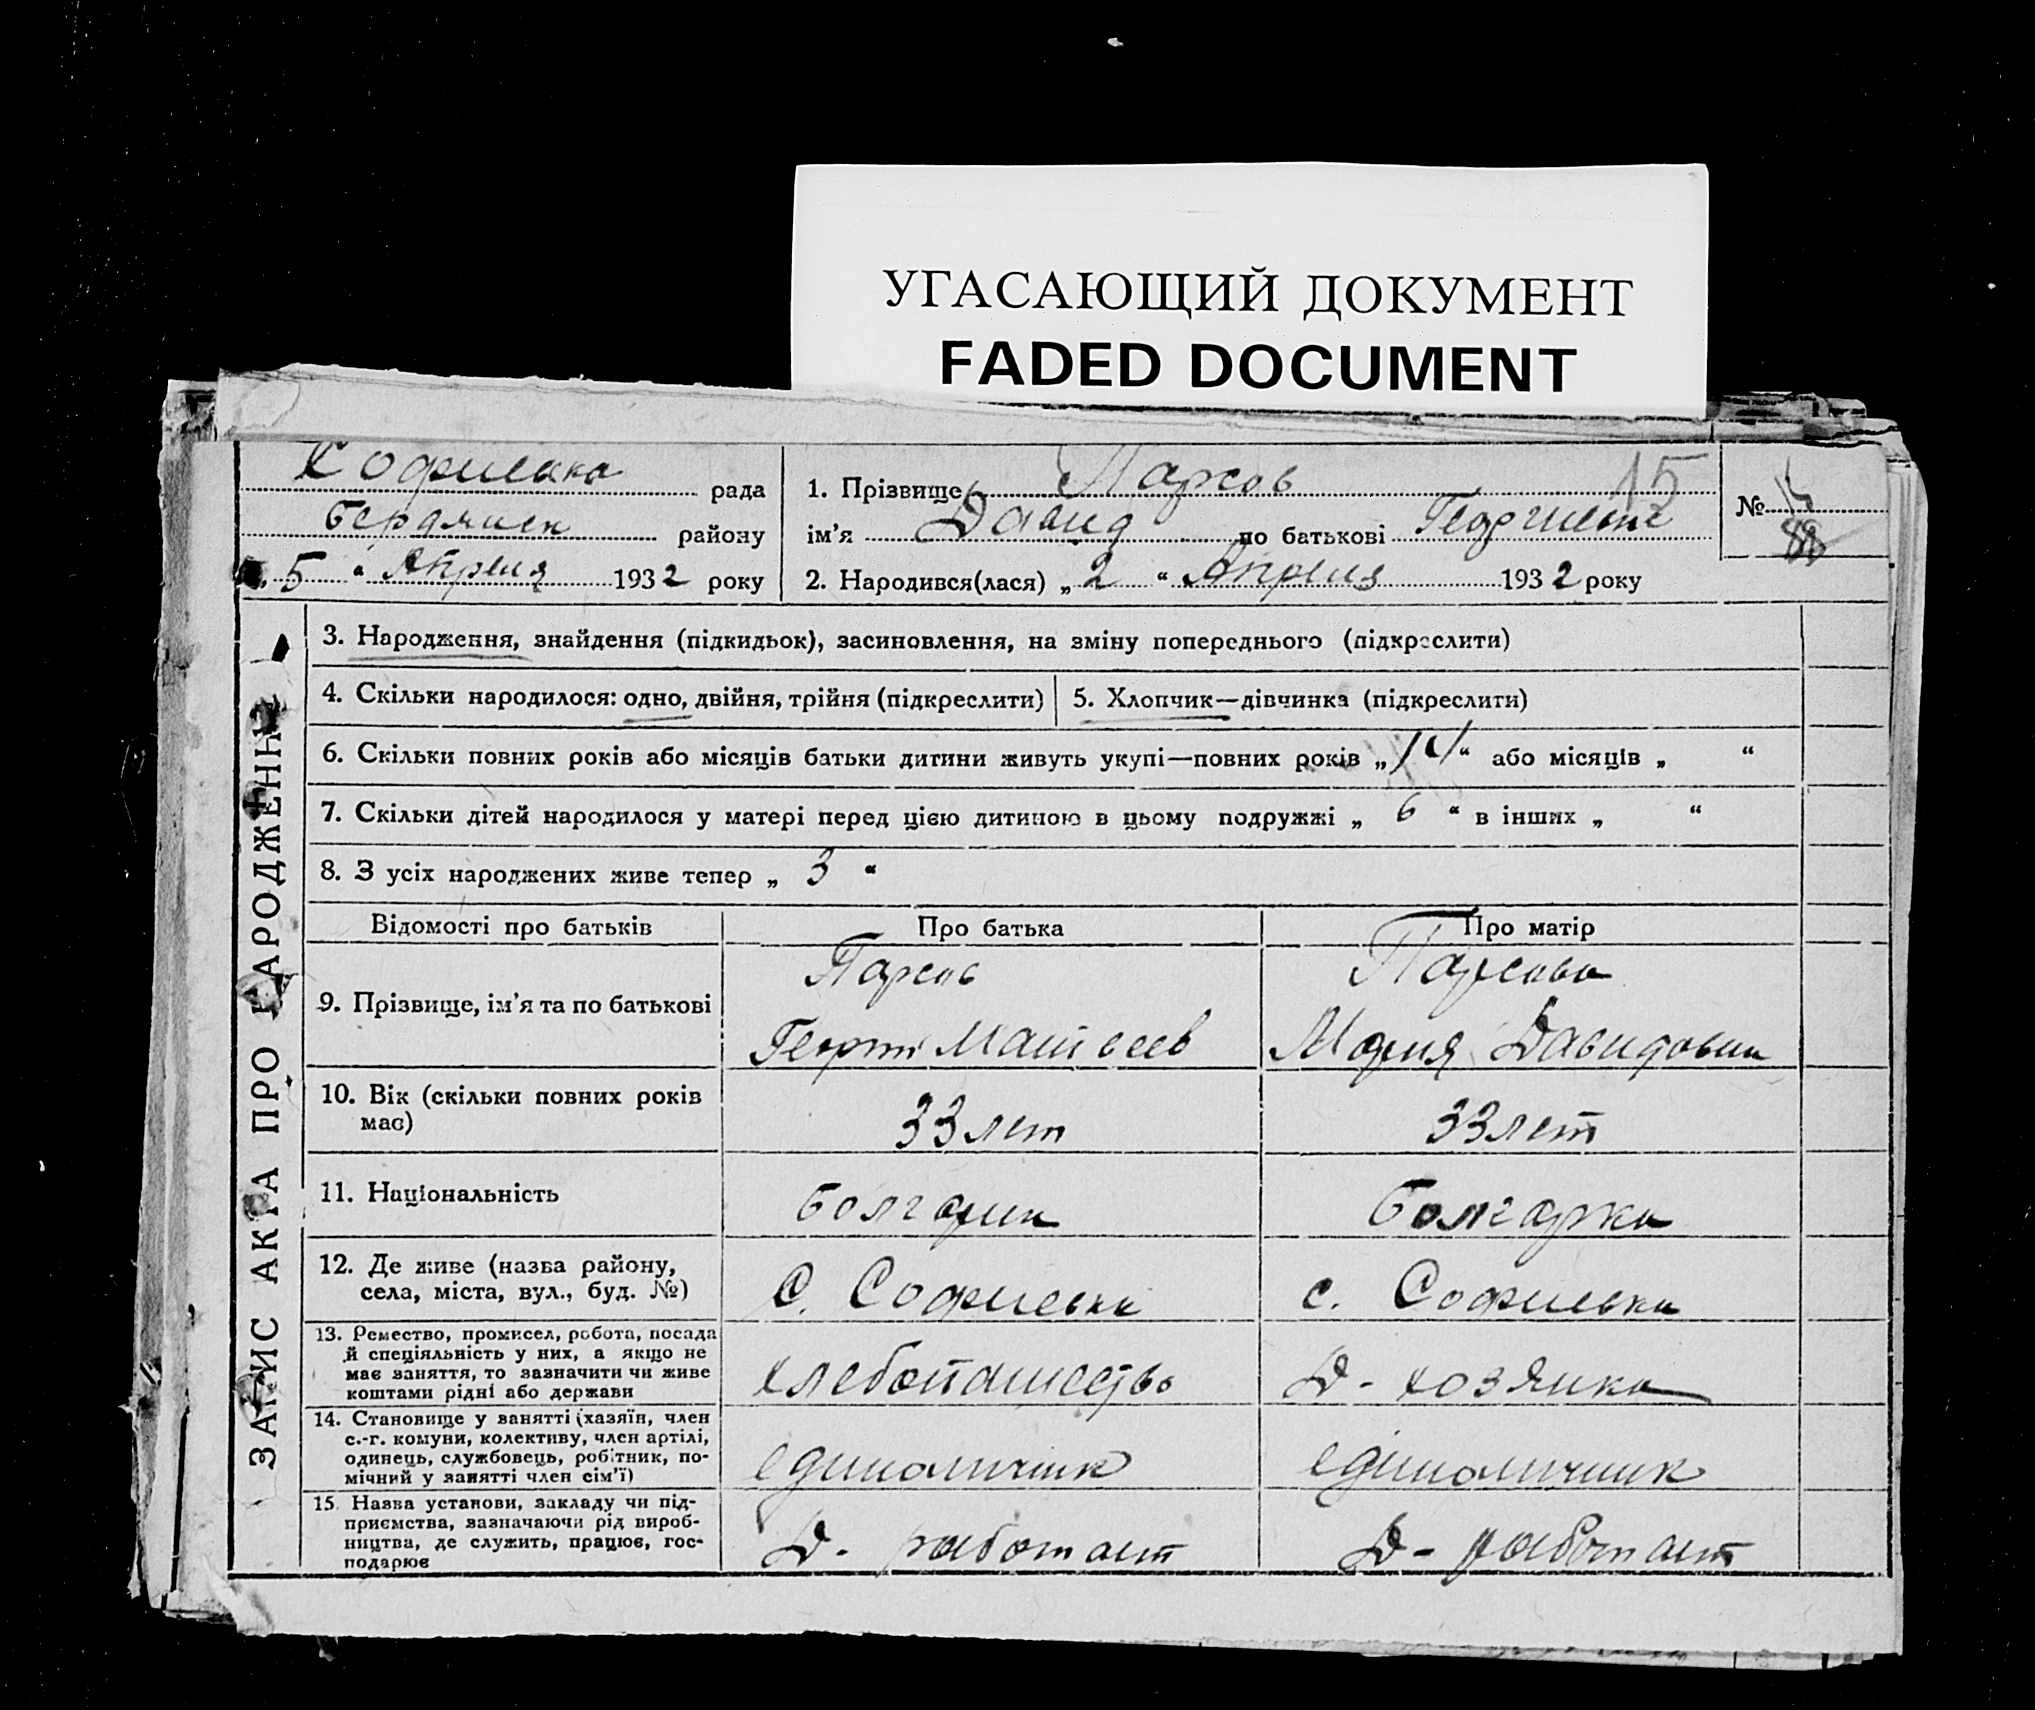 УГАСАЮЩИЙ ДОКУМЕНТ
FADED DOCUMENT
Софиевка рада
Бердянск району
5 “ Апреля 1932 року
1. Прізвище Парсов 15
ім'я Давид по батькові Георгиевич
2. Народився(лася) „ 2 “ Апреля 1932 року
№
ЗАПИС АКТА ПРО НАРОДЖЕННЯ
3. Народження, знайдення (підкидьок), засиновлення, на зміну попереднього (підкреслити)
4. Скільки народилося: одно, двійня, трійня (підкреслити)
5. Хлопчик—дівчинка (підкреслити)
6. Скільки повних років або місяців батьки дитини живуть укупі—повних років „ 14 “ або місяців „ “
7. Скільки дітей народилося у матері перед цією дитиною в цьому подружжі „ 6 “ в інших „ “
8. З усіх народжених живе тепер „ 3 “
Відомості про батьків Про батька Про матір
9. Прізвище, ім'я та по батькові
Парсов
Георги Матвеев
Парсова
Мария Давидовна
10. Вік (скільки повних років
має)
33 лет
33 лет
11. Національність
болгарин
болгарка
12. Де живе (назва району,
села, міста, вул., буд. №)
С. Софиевка
с. Софиевка
13. Ремество, промисел, робота, посада
й спеціяльність у них, а якщо не
має заняття, то зазначити чи живе
коштами рідні або держави
хлебопашество
Д - хозяйка
14. Становище у занятті (хазяїн, член
с.-г. комуни, колективу, член артілі,
одинець, службовець, робітник, по-
мічний у занятті член сім'ї)
единоличник
единоличник
15. Назва установи, закладу чи під-
приємства, зазначаючи рід вироб-
ництва, де служить, працює, гос-
подарює
Д - работает
Д - работает